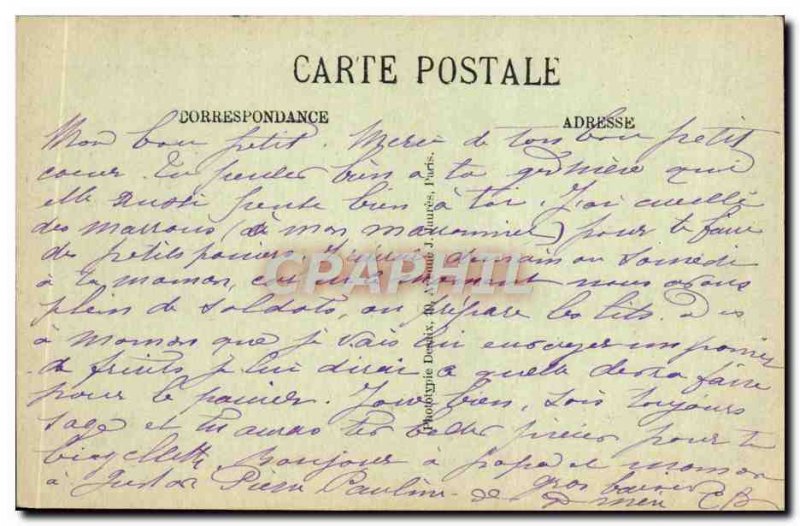 CARTE POSTALE
CORRESPONDANCE
ADRESSE
Mon bon petit. Merci de ton bon petit
coeur. Tu penses bien à ta qui
elle aussi pense bien à toi. J'ai cueilli
des marrons (de mon marronnier) pour te faire
des petits paniers, demain ou Samedi
à ta maman, en ce moment nous avons
plein de soldats, on prépare les lits. Dis
à maman que je vais lui envoyer un panier
de fruits je lui dirai ce qu'elle devra faire
pour le panier. Joue bien, sois toujours
sage et tu auras tes belles pour ta
bicyclette. Bonjour à papa et maman
à Pierre Pauline. de gros baisers
CB
Phototypie Desaix, Avenue J. Jaurès, Paris.
CPAPHIL